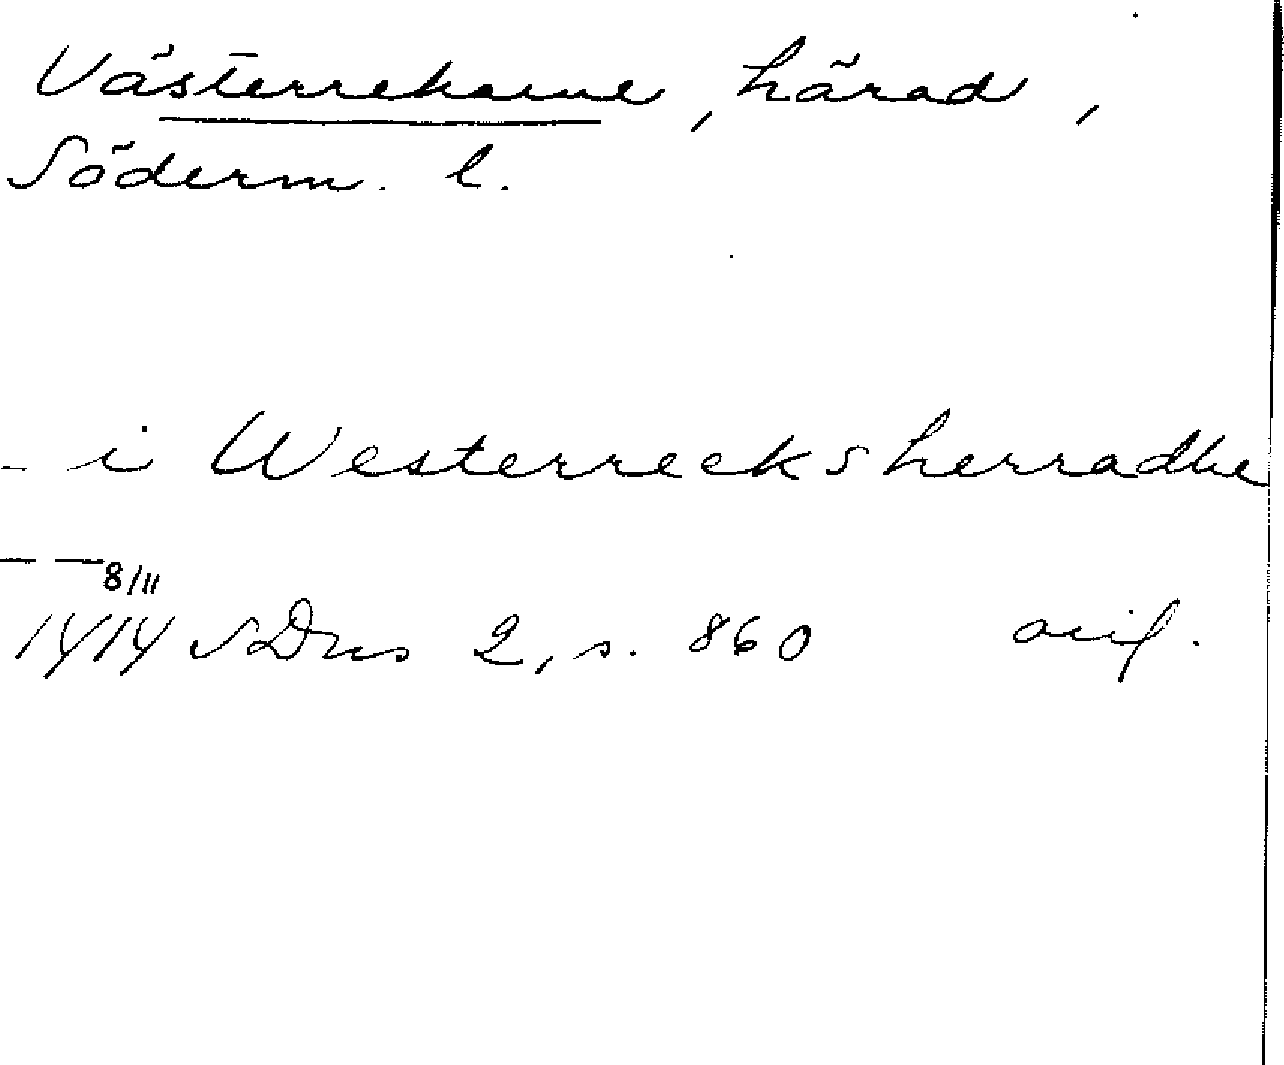 Västerrekarne, härad,
Söderm. l.
- i Westerrecksherradhe
— — 8/11
1414 SDns 2, s. 860 orig.